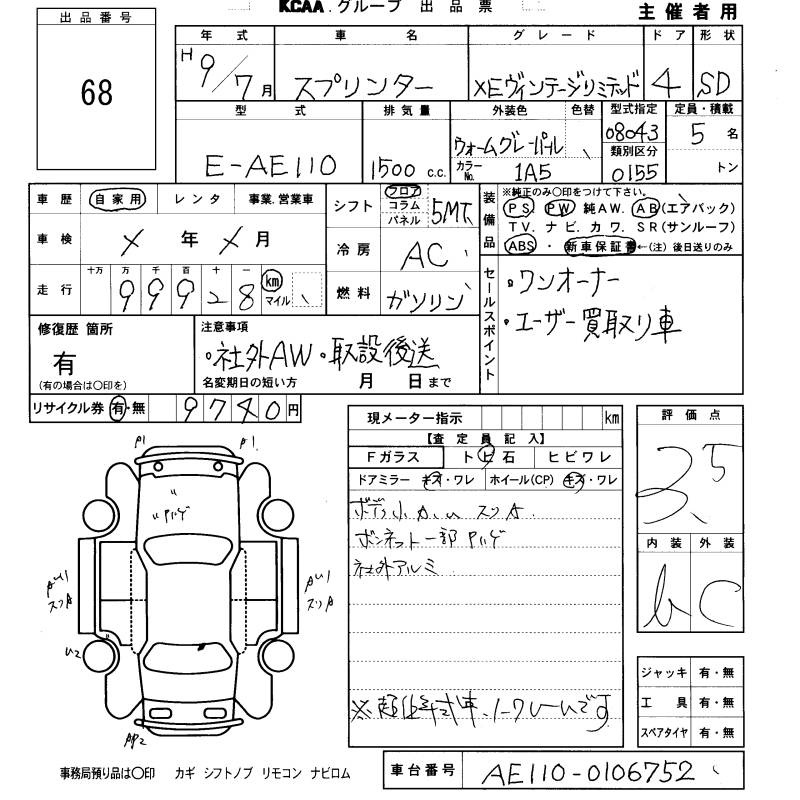 KCAA.グループ 出品票
主催者用
出品番号
68
年式 車名 グレード ドア 形状
H 9/7月 スプリンター XEヴィンテージリミテッド 4 SD
型式 排気量 外装色 色替 型式指定 定員・積載
08043 5名
E-AE110 1500 c.c. ウォームグレーパール 類別区分
カラーNo. 1A5 0155 トン
車歴 自家用 レンタ 事業.営業車
シフト フロア コラム パネル 5MT
装備品 ※純正のみ○印をつけて下さい。
PS PW 純AW. AB(エアバック)
TV. ナビ. カワ. SR(サンルーフ)
ABS ・ 新車保証書 ←(注) 後日送りのみ
車検 X年X月
冷房 AC
走行 十万 万 千 百 十 一
99928 km マイル
燃料 ガソリン
セールスポイント
・ワンオーナー
・ユーザー買取り車
修復歴 箇所
有
(有の場合は○印を)
注意事項
・社外AW・取説後送
名変期日の短い方 月 日まで
リサイクル券 有・無 9740円
現メーター指示 km
【査定員記入】
Fガラス トビ石 ヒビワレ
ドアミラー キズ・ワレ ホイール(CP) キズ・ワレ
ボンネット一部ハゲ
社外アルミ
評価点
3.5
内装 外装
b C
ジャッキ 有・無
工具 有・無
スペアタイヤ 有・無
事務局預り品は○印 カギ シフトノブ リモコン ナビロム
車台番号 AE110-0106752